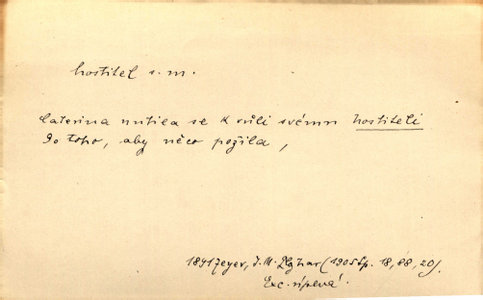 hostitel s. m.
Caterina nutila se k vůli svému hostiteli
do toho, aby něco požila,
1891 Zeyer, J. M. Plojhar (1905 Sp. 18, 88, 20).
Exc.